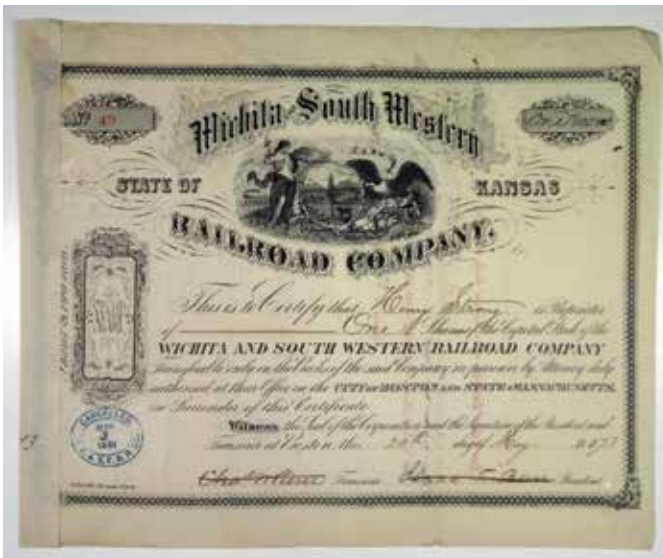 No 49
Wichita and South Western
STATE OF KANSAS
RAILROAD COMPANY.
This is to Certify that Henry Strong is Proprietor
of One Shares of the Capital Stock of the
WICHITA AND SOUTH WESTERN RAILROAD COMPANY
transferable only on the Books of the said Company in person or by Attorney duly
authorized at their Office in the CITY OF BOSTON AND STATE OF MASSACHUSETTS,
on Surrender of this Certificate.
Witness the Seal of the Corporation and the Signature of the President and
Treasurer at Boston this 20th day of May
Treasurer President
CANCELLED
13